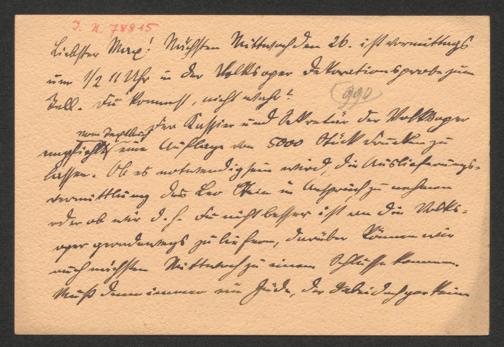 I. N. 78815
Liebster Max! Nächsten Mittwoch den 26. ist vormittags
um 1/2 11 Uhr in der Volksoper Dekorationsprobe zum
Tell. Du kommst, nicht wahr?
990
vom Textbuch
der Kassier und Sekretär der Volksoper
empfiehlt eine Auflage von 5000 Stück drucken zu
lassen. Ob es notwendig sein wird, die Auslieferungs-
vermittlung des Leo in Anspruch zu nehmen
oder ob wir d. h. Du nicht besser ist an die Volks-
oper geradewegs zu liefern, darüber können wir
nach nächsten Mittwoch zu einem Schlusse kommen.
Muß denn immer ein Jude, der dabei doch gar kein